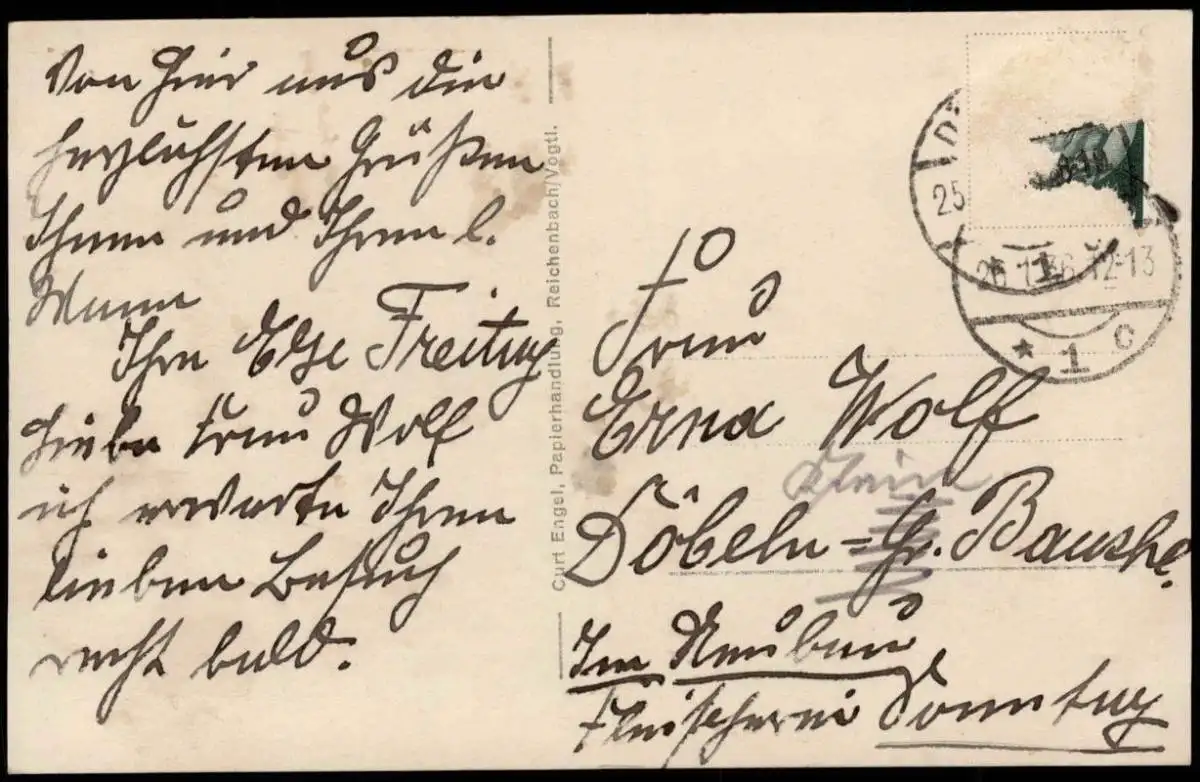 Von hier aus die
herzlichsten Grüßen
Ihnen und Ihren l.
Mann
Ihre Else Freitag
Liebe Frau Wolf
ich erwarte Ihren
lieben Besuch
recht bald.
Curt Engel, Papierhandlung, Reichenbach/Vogtl.
25
8-10
26.11.36.12-13
* 1 c
Frau
Erna Wolf
Klein
Döbeln = Gr. Bauchl.
Im Neubau
Fleischerei Sonntag